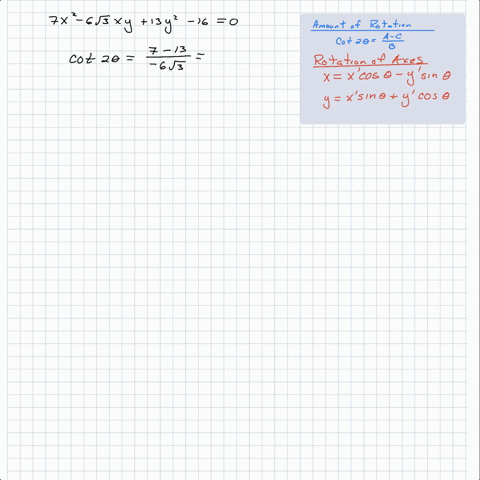 7x² - 6√3 xy + 13y² - 16 = 0
cot 2θ = (7 - 13)/(-6√3) =
Amount of Rotation
Cot 2θ = (A-C)/B
Rotation of Axes
x = x'cos θ - y'sin θ
y = x'sin θ + y' cos θ